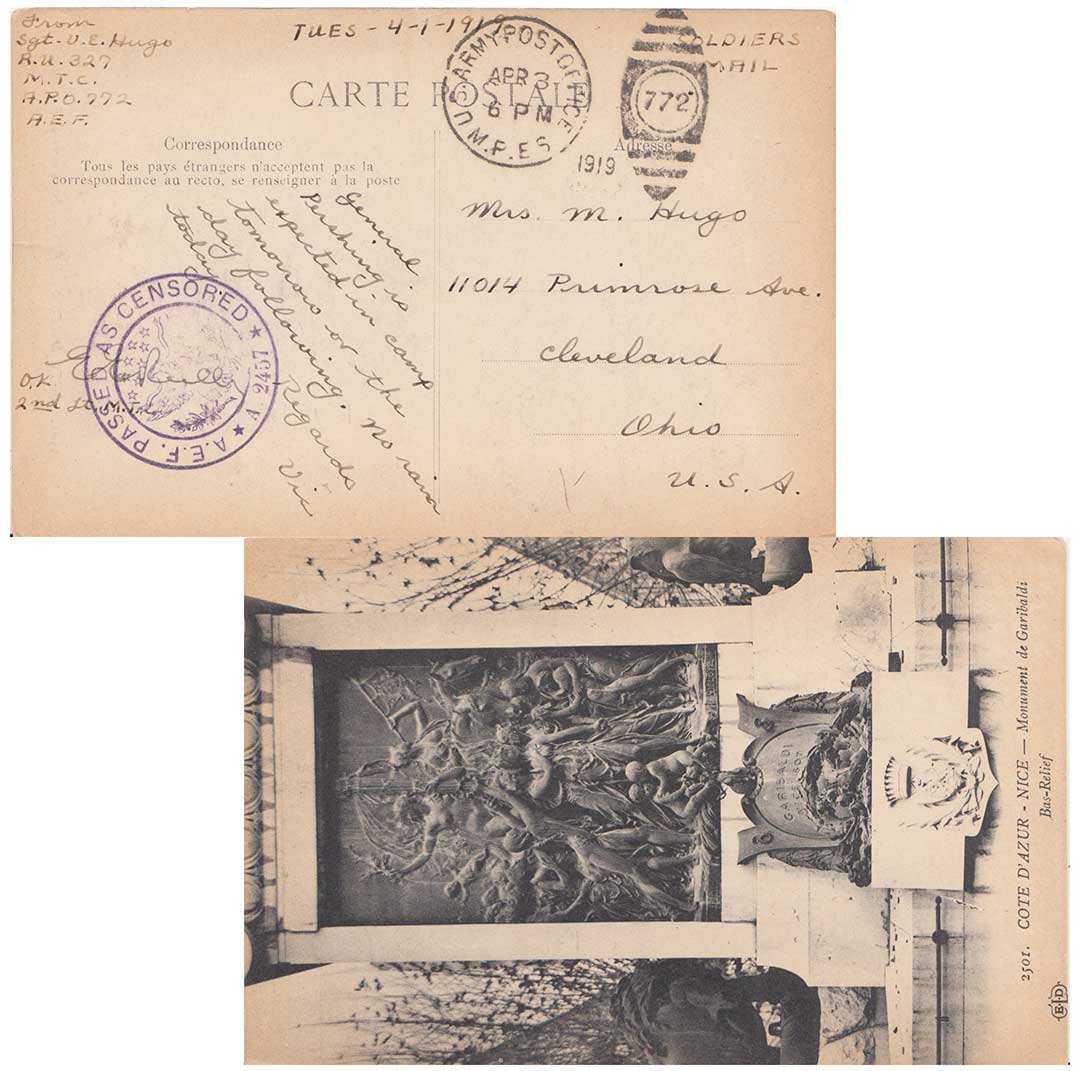 From
Sgt. V. E. Hugo
R.U. 327
M.T.C.
A.P.O. 772
A.E.F.
TUES - 4-1-1919
SOLDIERS
MAIL
CARTE POSTALE
U.S. ARMY POST OFFICE
M.P.E.S.
APR 3
6 PM
1919
772
Correspondance
Tous les pays étrangers n'acceptent pas la
correspondance au recto, se renseigner à la poste
Adresse
General
Pershing is
expected in camp
tomorrow or the
day following. No rain
today.
Regards
Vic
Mrs. M. Hugo
11014 Primrose Ave.
Cleveland
Ohio
U. S. A.
A.E.F. PASSED AS CENSORED
A 2457
O.K.
2nd Lt. M.T.C.
GARIBALDI
2501. COTE D'AZUR - NICE — Monument de Garibaldi
Bas-Relief
E.L.D